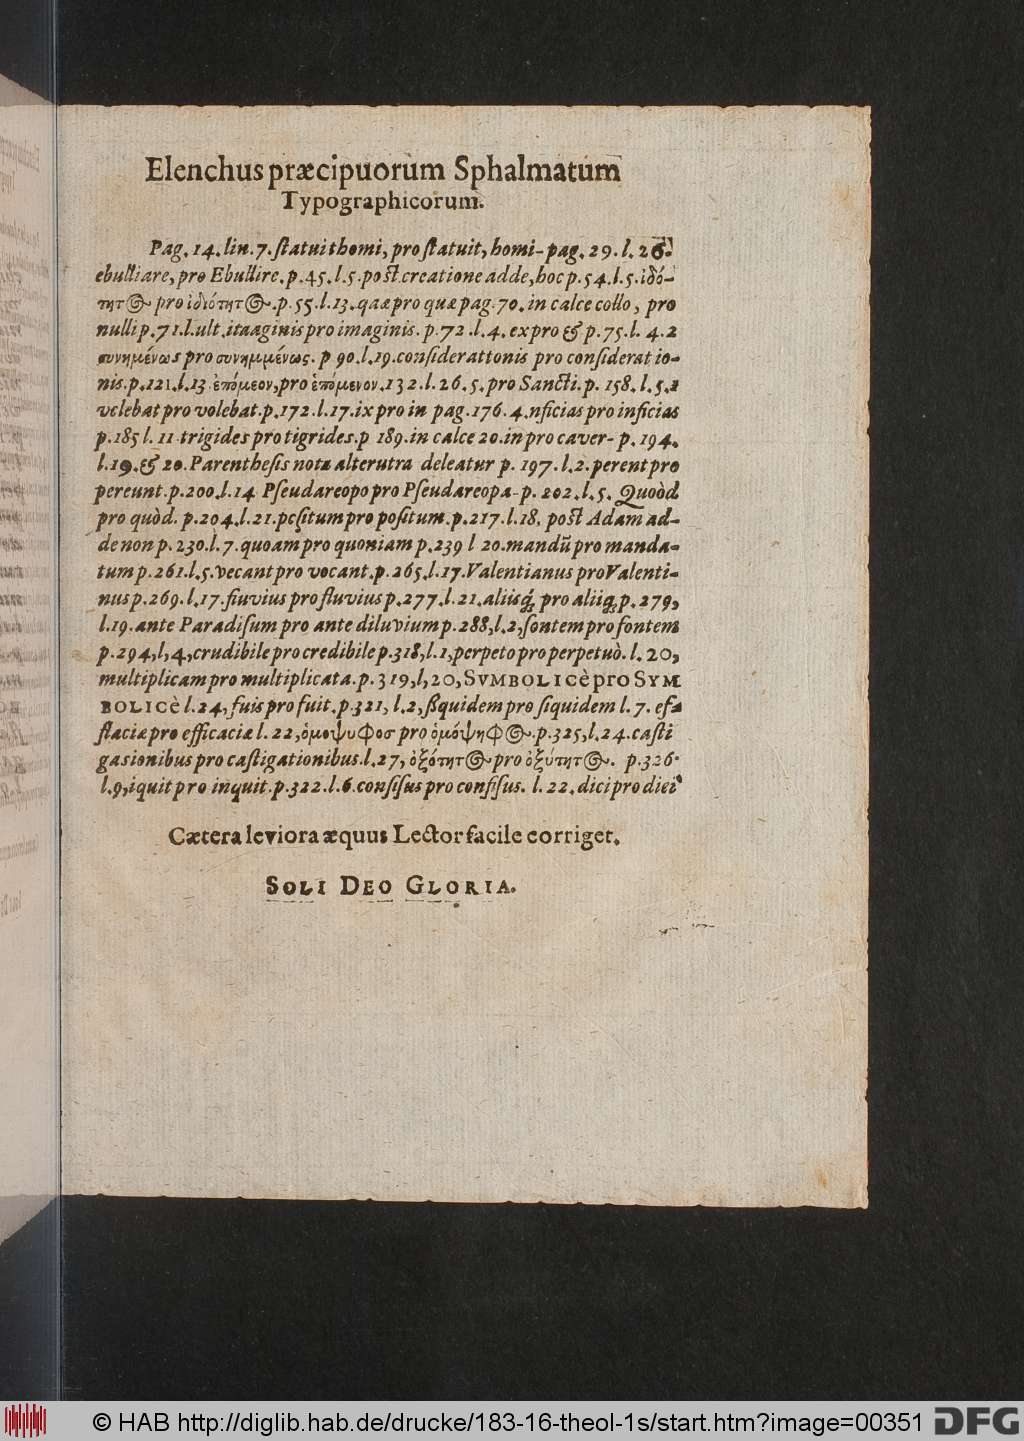 Elenchus præcipuorum Sphalmatum
Typographicorum.
Pag. 14. lin. 7. ſtatuithomi, pro ſtatuit, homi- pag. 29. l. 26.
ebulliare, pro Ebullire. p. 45. l. 5. poſt creatione adde, hoc p. 54. l. 5. ἰδό-
τητ@ pro ἰδιότητ@. p. 55. l. 13. qaæ pro quæ pag. 70. in calce collo, pro
nulli p. 71. l. ult. itaaginis pro imaginis. p. 72. l. 4. ex pro & p. 75. l. 4. 2
συνημένως pro συνημμένως. p 90. l. 19. conſiderattonis pro conſideratio-
nis. p. 121. l. 13 ἐπόμεον, pro ἑπόμενον. 132. l. 26. 5. pro Sancti. p. 158. l. 5. 1
velebat pro volebat. p. 172. l. 17. ix pro in pag. 176. 4. nficias pro inficias
p. 185 l. 11 trigides pro tigrides. p 189. in calce 20. in pro caver- p. 194.
l. 19. & 20. Parentheſis nota alterutra deleatur p. 197. l. 2. perent pro
pereunt. p. 200. l. 14 Pſeudareopo pro Pſeudareopa- p. 202. l. 5. Quoòd
pro quòd. p. 204. l. 21. pcſitum pro poſitum. p. 217. l. 18. poſt Adam ad-
de non p. 230. l. 7. quoam pro quoniam p. 239 l 20. mandũ pro manda-
tum p. 261. l. 5. vecant pro vocant. p. 265. l. 17. Valentianus pro Valenti-
nus p. 269. l. 17. fiuvius pro fluvius p. 277. l. 21. aliisq́; pro aliiq; p. 279,
l. 19. ante Paradiſum pro ante diluvium p. 288, l. 2, ſontem pro fontem
p. 294, l, 4, crudibile pro credibile p. 318, l. 1, perpeto pro perpetuò. l. 20,
multiplicam pro multiplicata. p. 319, l, 20, SVMBOLICè pro SYM
BOLICè l. 24, fuis pro fuit. p. 321, l. 2, ßquidem pro ſiquidem l. 7. ef-
ſlaciæ pro efficaciæ l. 22, ὁμοψυφος pro ὁμόψηφ@. p. 325, l. 24. caſti
gasionibus pro caſtigationibus. l. 27, ὀξότητ@ pro ὀξύτητ@. p. 326.
l. 9, iquit pro inquit. p. 322. l. 6. conſiſus pro confiſus. l. 22. dici pro diei
Cætera leviora æquus Lector facile corriget.
SOLI DEO GLORIA.
© HAB http://diglib.hab.de/drucke/183-16-theol-1s/start.htm?image=00351
DFG